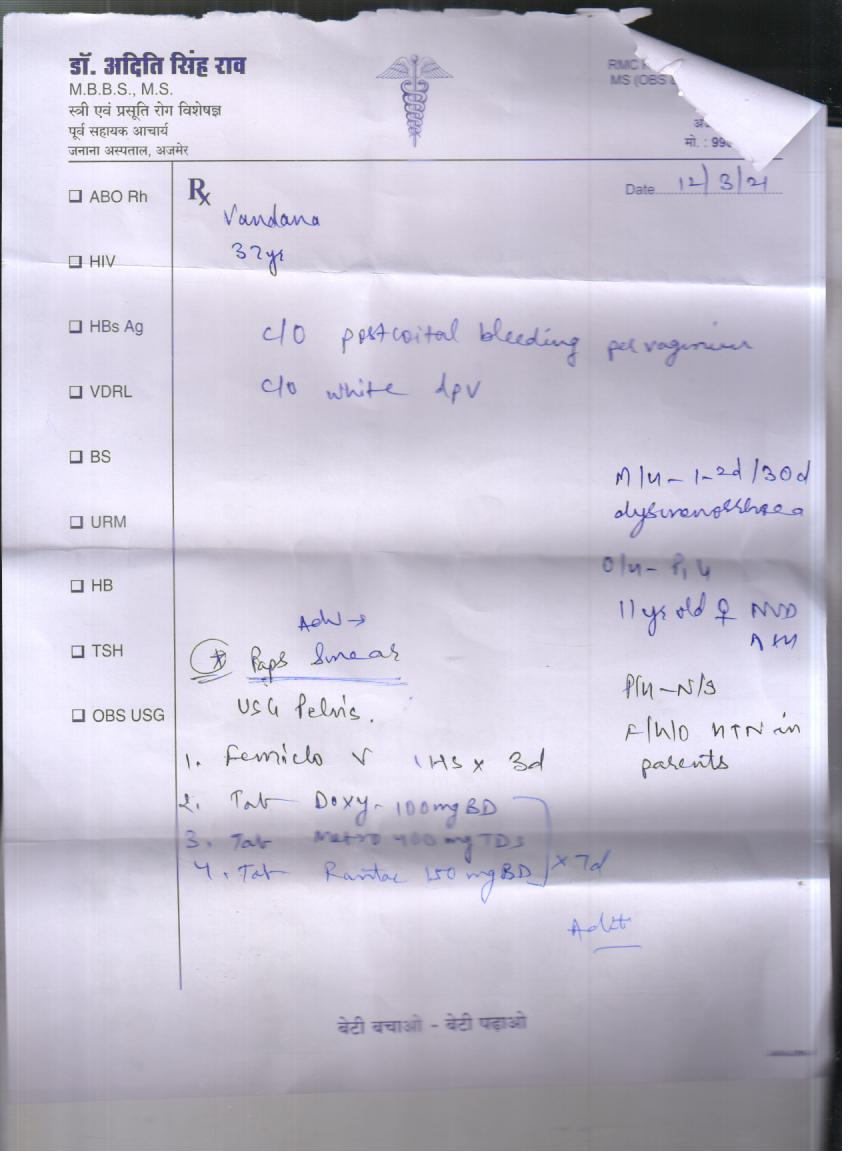 डॉ. अदिति सिंह राव
M.B.B.S., M.S.
स्त्री एवं प्रसूति रोग विशेषज्ञ
पूर्व सहायक आचार्य
जनाना अस्पताल, अजमेर
RMC
MS (OBS
मो. : 99
Rx
Date 12/3/21
ABO Rh
Vandana
HIV
37yr
HBs Ag
c/o postcoital bleeding per vaginum
VDRL
c/o white dpv
BS
M/H- 1-2d/30d
dysmenorrhoea
URM
O/H- P1L1
HB
11 yr old ♀ NVD
Adv →
TSH
Paps Smear
P/H-N/S
OBS USG
USG Pelvis.
F/H/O HTN in
parents
1. Femiclo V 1HS x 3d
2. Tab Doxy- 100mg BD
3. Tab Metro 400 mg TDS
4. Tab Rantac 150 mg BD x 7d
बेटी बचाओ - बेटी पढ़ाओ